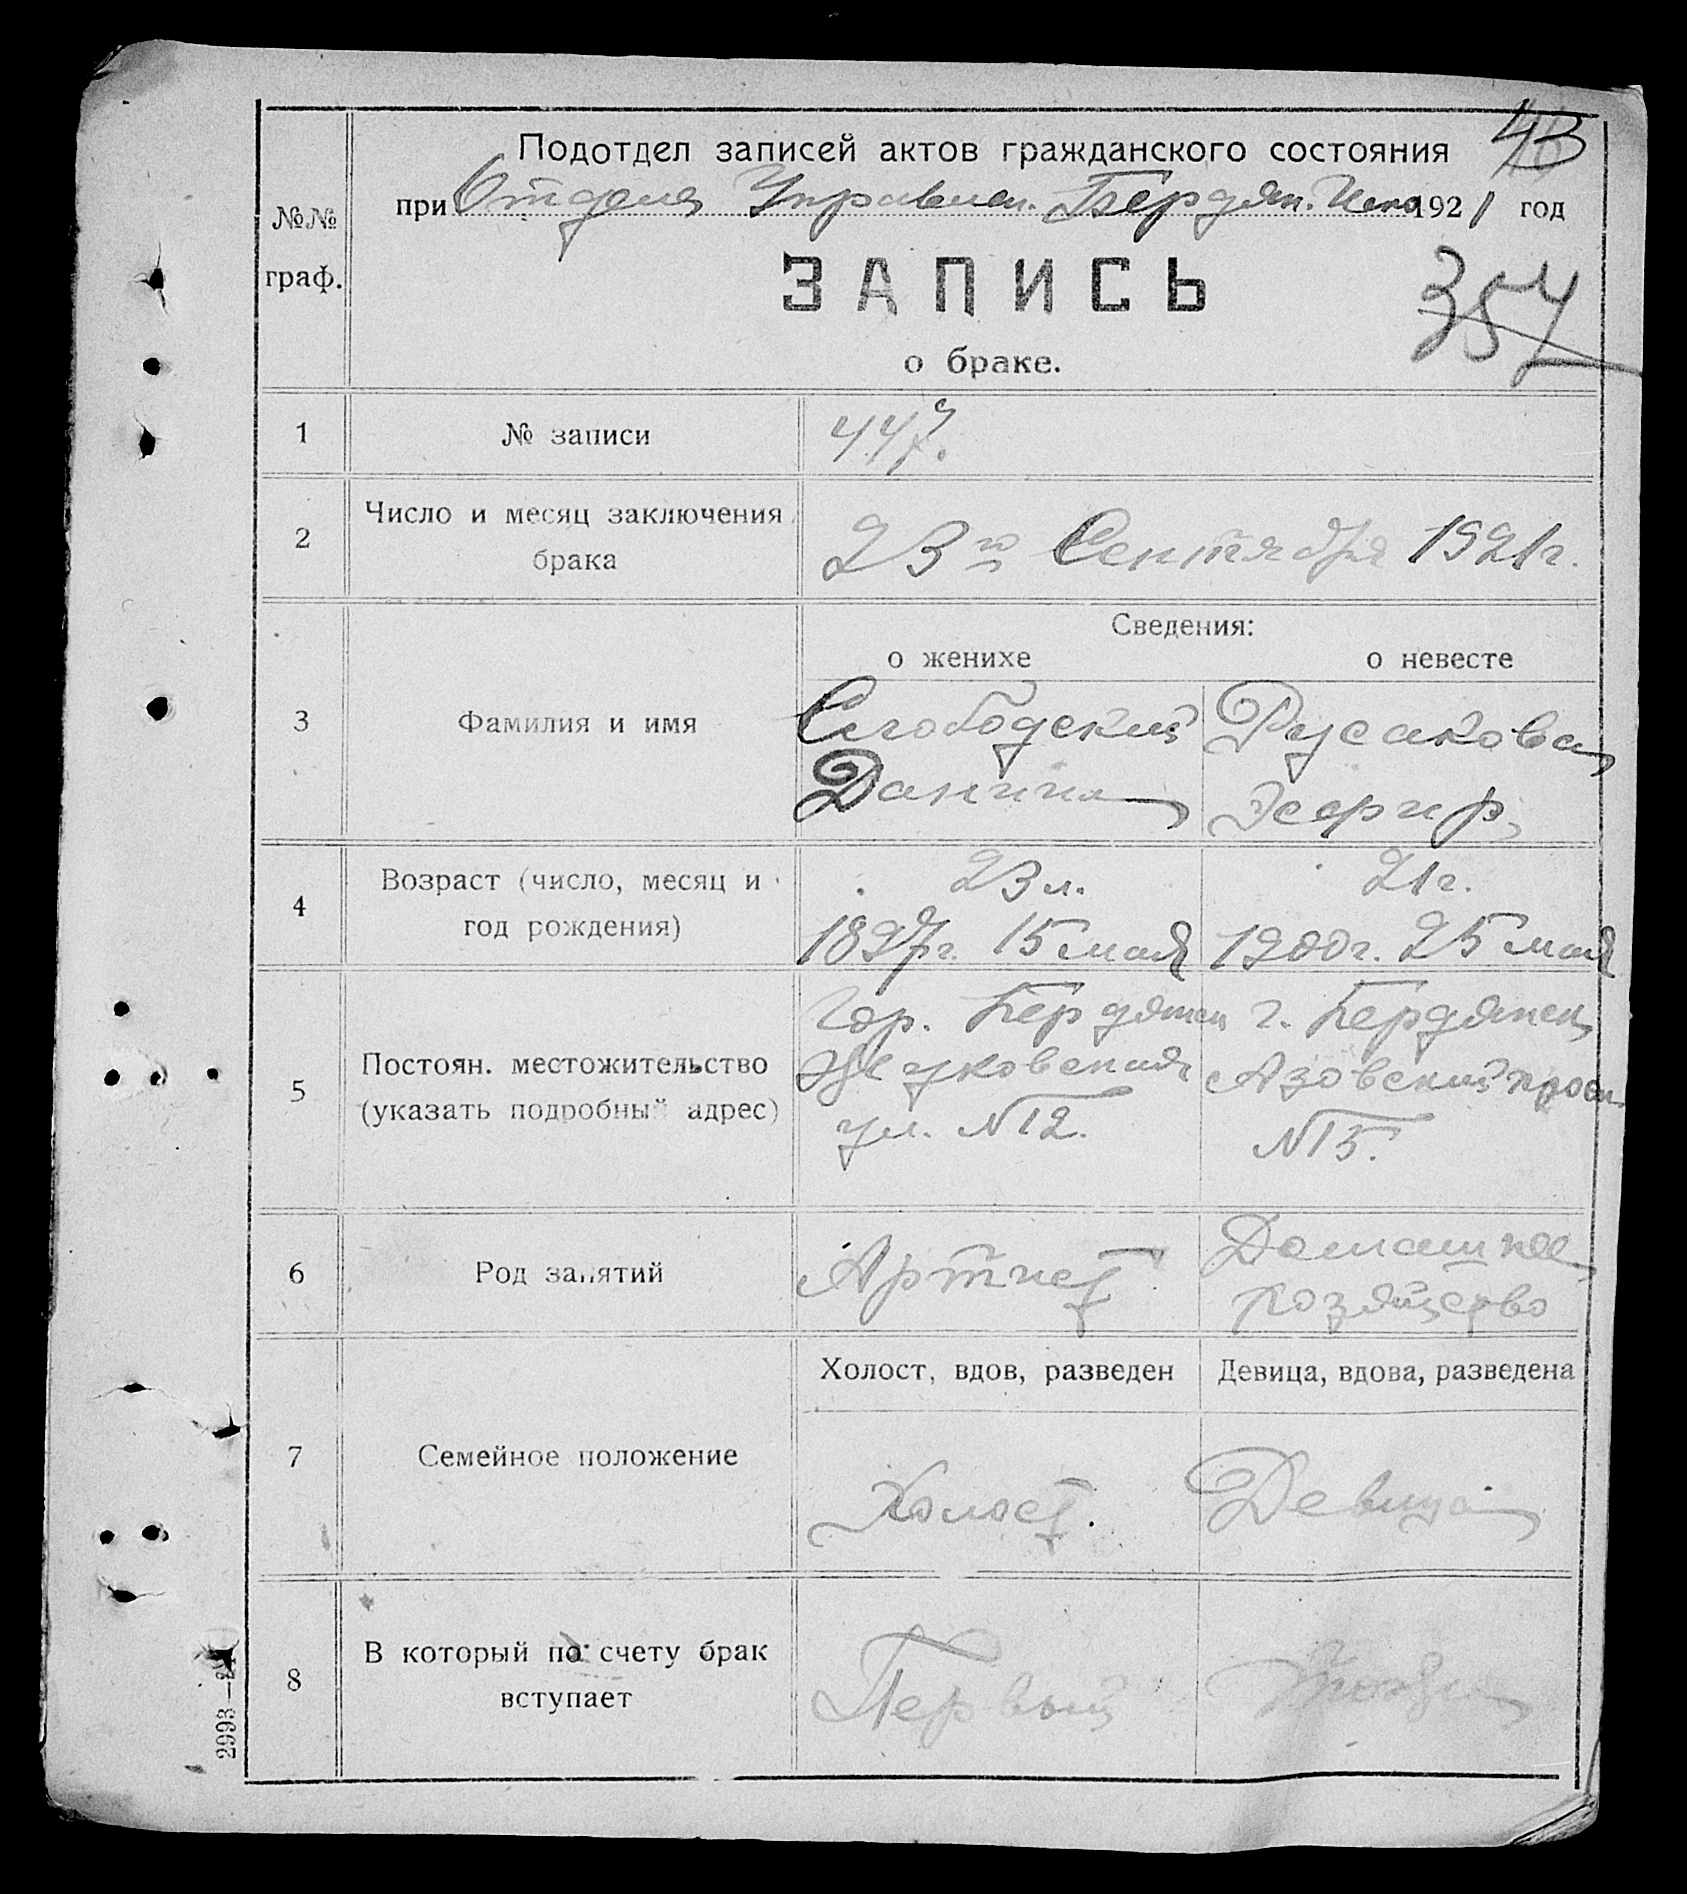 43
Подотдел записей актов гражданского состояния
при Отделе Управлен. Бердян. Исп. 1921 год
№№
граф.
ЗАПИСЬ
357
о браке.
1 № записи 447.
2 Число и месяц заключения
брака 23го Сентября 1921г.
Сведения:
о женихе о невесте
3 Фамилия и имя Слободский Русакова
Даниил Эсфирь
4 Возраст (число, месяц и
год рождения) 23 л. 21 г.
1897г. 15 мая 1900г. 25 мая
5 Постоян. местожительство
(указать подробный адрес)
Гор. Бердянск г. Бердянск
Жуковская Азовский просп.
ул. N 12. N 15.
6 Род занятий Артист Домашнее
хозяйство
Холост, вдов, разведен Девица, вдова, разведена
7 Семейное положение
Холост. Девица
8 В который по счету брак
вступает Первый
2993